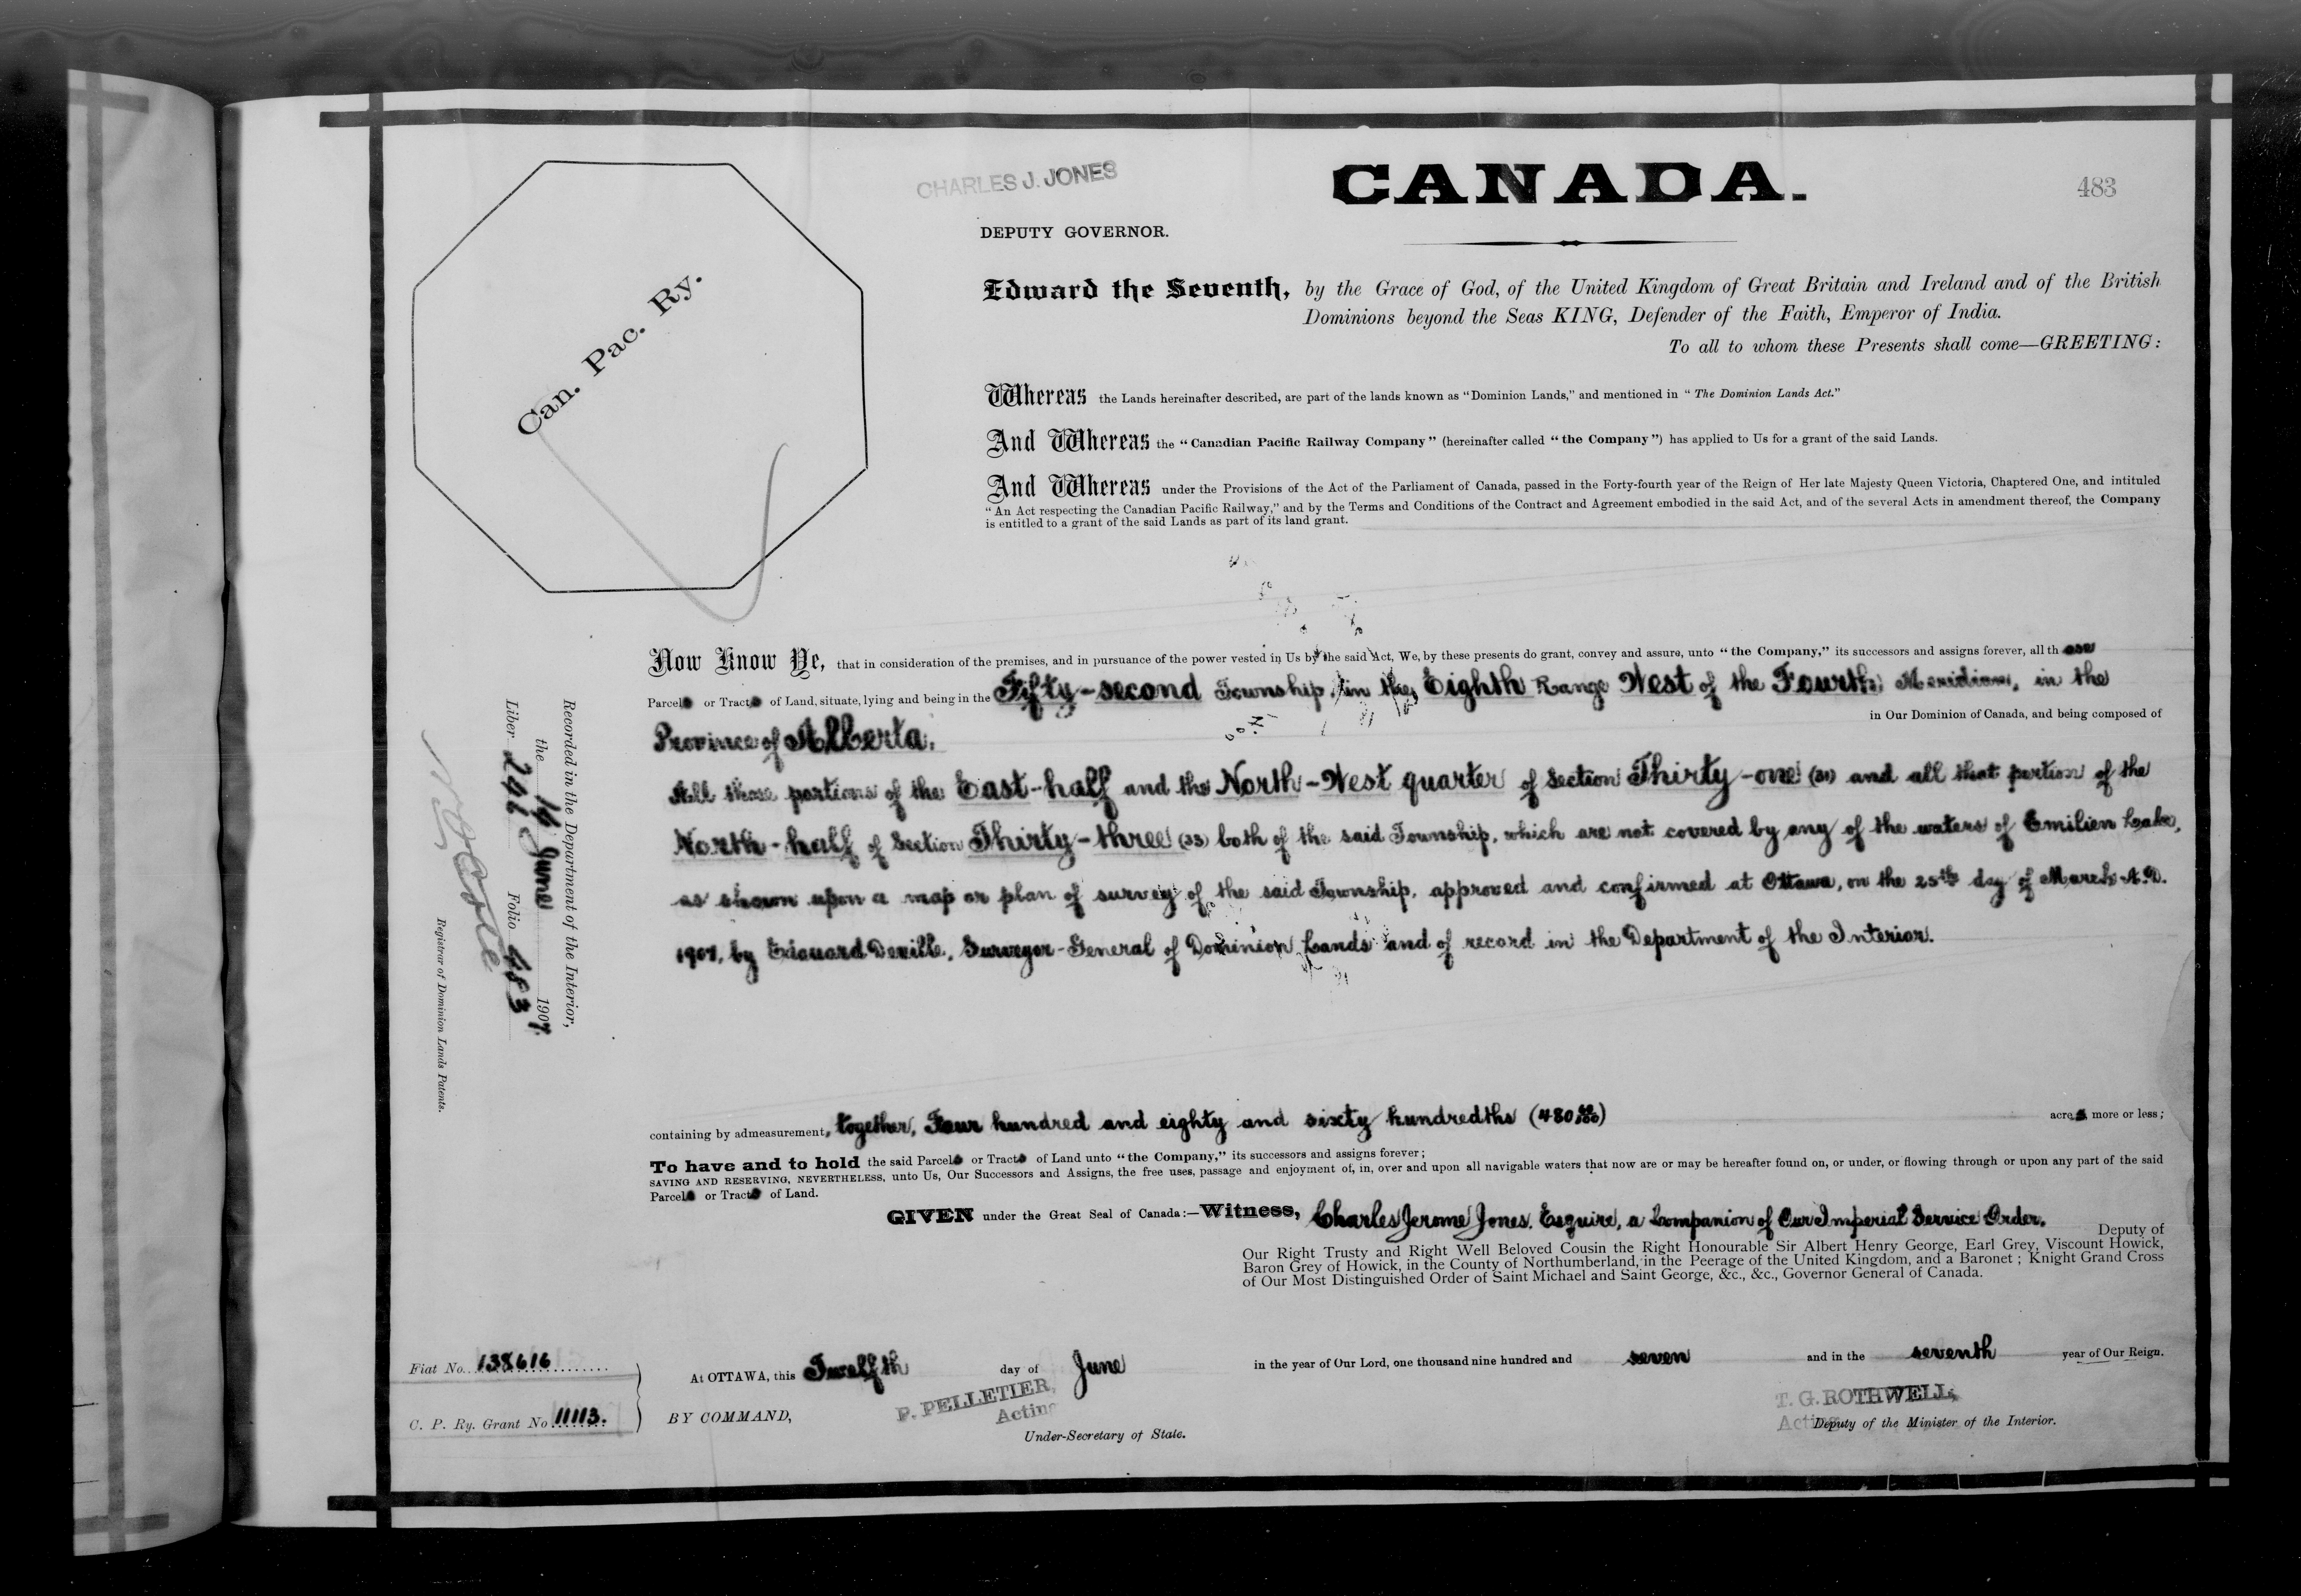 CHARLES J. JONES
CANADA.
483
DEPUTY GOVERNOR.
Can. Pac. Ry.
Edward the Seventh, by the Grace of God, of the United Kingdom of Great Britain and Ireland and of the British
Dominions beyond the Seas KING, Defender of the Faith, Emperor of India.
To all to whom these Presents shall come—GREETING:
Whereas the Lands hereinafter described, are part of the lands known as "Dominion Lands," and mentioned in "The Dominion Lands Act."
And Whereas the "Canadian Pacific Railway Company" (hereinafter called "the Company") has applied to Us for a grant of the said Lands.
And Whereas under the Provisions of the Act of the Parliament of Canada, passed in the Forty-fourth year of the Reign of Her late Majesty Queen Victoria, Chaptered One, and intituled
"An Act respecting the Canadian Pacific Railway," and by the Terms and Conditions of the Contract and Agreement embodied in the said Act, and of the several Acts in amendment thereof, the Company
is entitled to a grant of the said Lands as part of its land grant.
Now Know Ye, that in consideration of the premises, and in pursuance of the power vested in Us by the said Act, We, by these presents do grant, convey and assure, unto "the Company," its successors and assigns forever, all those
Parcels or Tracts of Land, situate, lying and being in the Fifty-second Township, in the Eighth Range West of the Fourth Meridian, in the
Province of Alberta, in Our Dominion of Canada, and being composed of
All those portions of the East-half and the North-West quarter of Section Thirty-one (31) and all that portion of the
North-half of Section Thirty-three (33) both of the said Township, which are not covered by any of the waters of Emilien Lake,
as shown upon a map or plan of survey of the said Township, approved and confirmed at Ottawa, on the 25th day of March A.D.
1907, by Edouard Deville, Surveyor-General of Dominion Lands and of record in the Department of the Interior.
containing by admeasurement, together, Four hundred and eighty and sixty hundredths (480 60/100) acres more or less;
To have and to hold the said Parcels or Tracts of Land unto "the Company," its successors and assigns forever;
SAVING AND RESERVING, NEVERTHELESS, unto Us, Our Successors and Assigns, the free uses, passage and enjoyment of, in, over and upon all navigable waters that now are or may be hereafter found on, or under, or flowing through or upon any part of the said
Parcels or Tracts of Land.
GIVEN under the Great Seal of Canada:—Witness, Charles Jerome Jones, Esquire, a Companion of Our Imperial Service Order,
Deputy of
Our Right Trusty and Right Well Beloved Cousin the Right Honourable Sir Albert Henry George, Earl Grey, Viscount Howick,
Baron Grey of Howick, in the County of Northumberland, in the Peerage of the United Kingdom, and a Baronet; Knight Grand Cross
of Our Most Distinguished Order of Saint Michael and Saint George, &c., &c., Governor General of Canada.
At OTTAWA, this Twelfth day of June in the year of Our Lord, one thousand nine hundred and seven and in the seventh year of Our Reign.
BY COMMAND,
P. PELLETIER,
Acting
Under-Secretary of State.
T. G. ROTHWELL,
Acting Deputy of the Minister of the Interior.
Fiat No. 138616
C. P. Ry. Grant No. 11113.
Recorded in the Department of the Interior,
the 14 June 1907.
Liber 246 Folio 483
Registrar of Dominion Lands Patents.